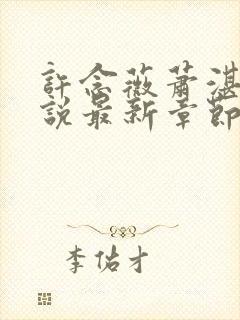 許念薇蕭湛
說最新章節
李佑才